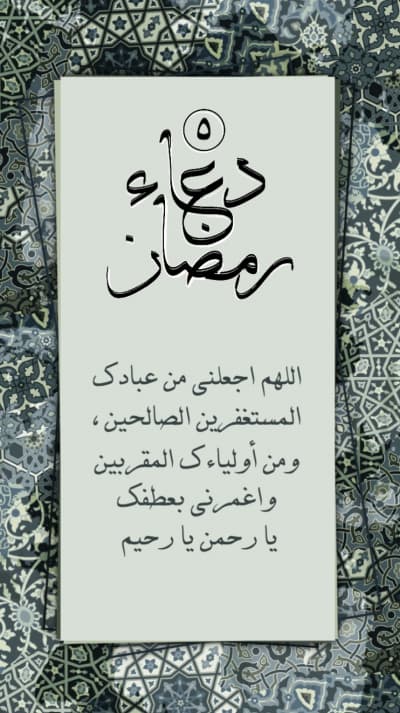 ٥
دعاء
رمضان
اللهم اجعلنى من عبادك
المستغفرين الصالحين ،
ومن أولياءك المقربين
واغمرنى بعطفك
يا رحمن يا رحيم